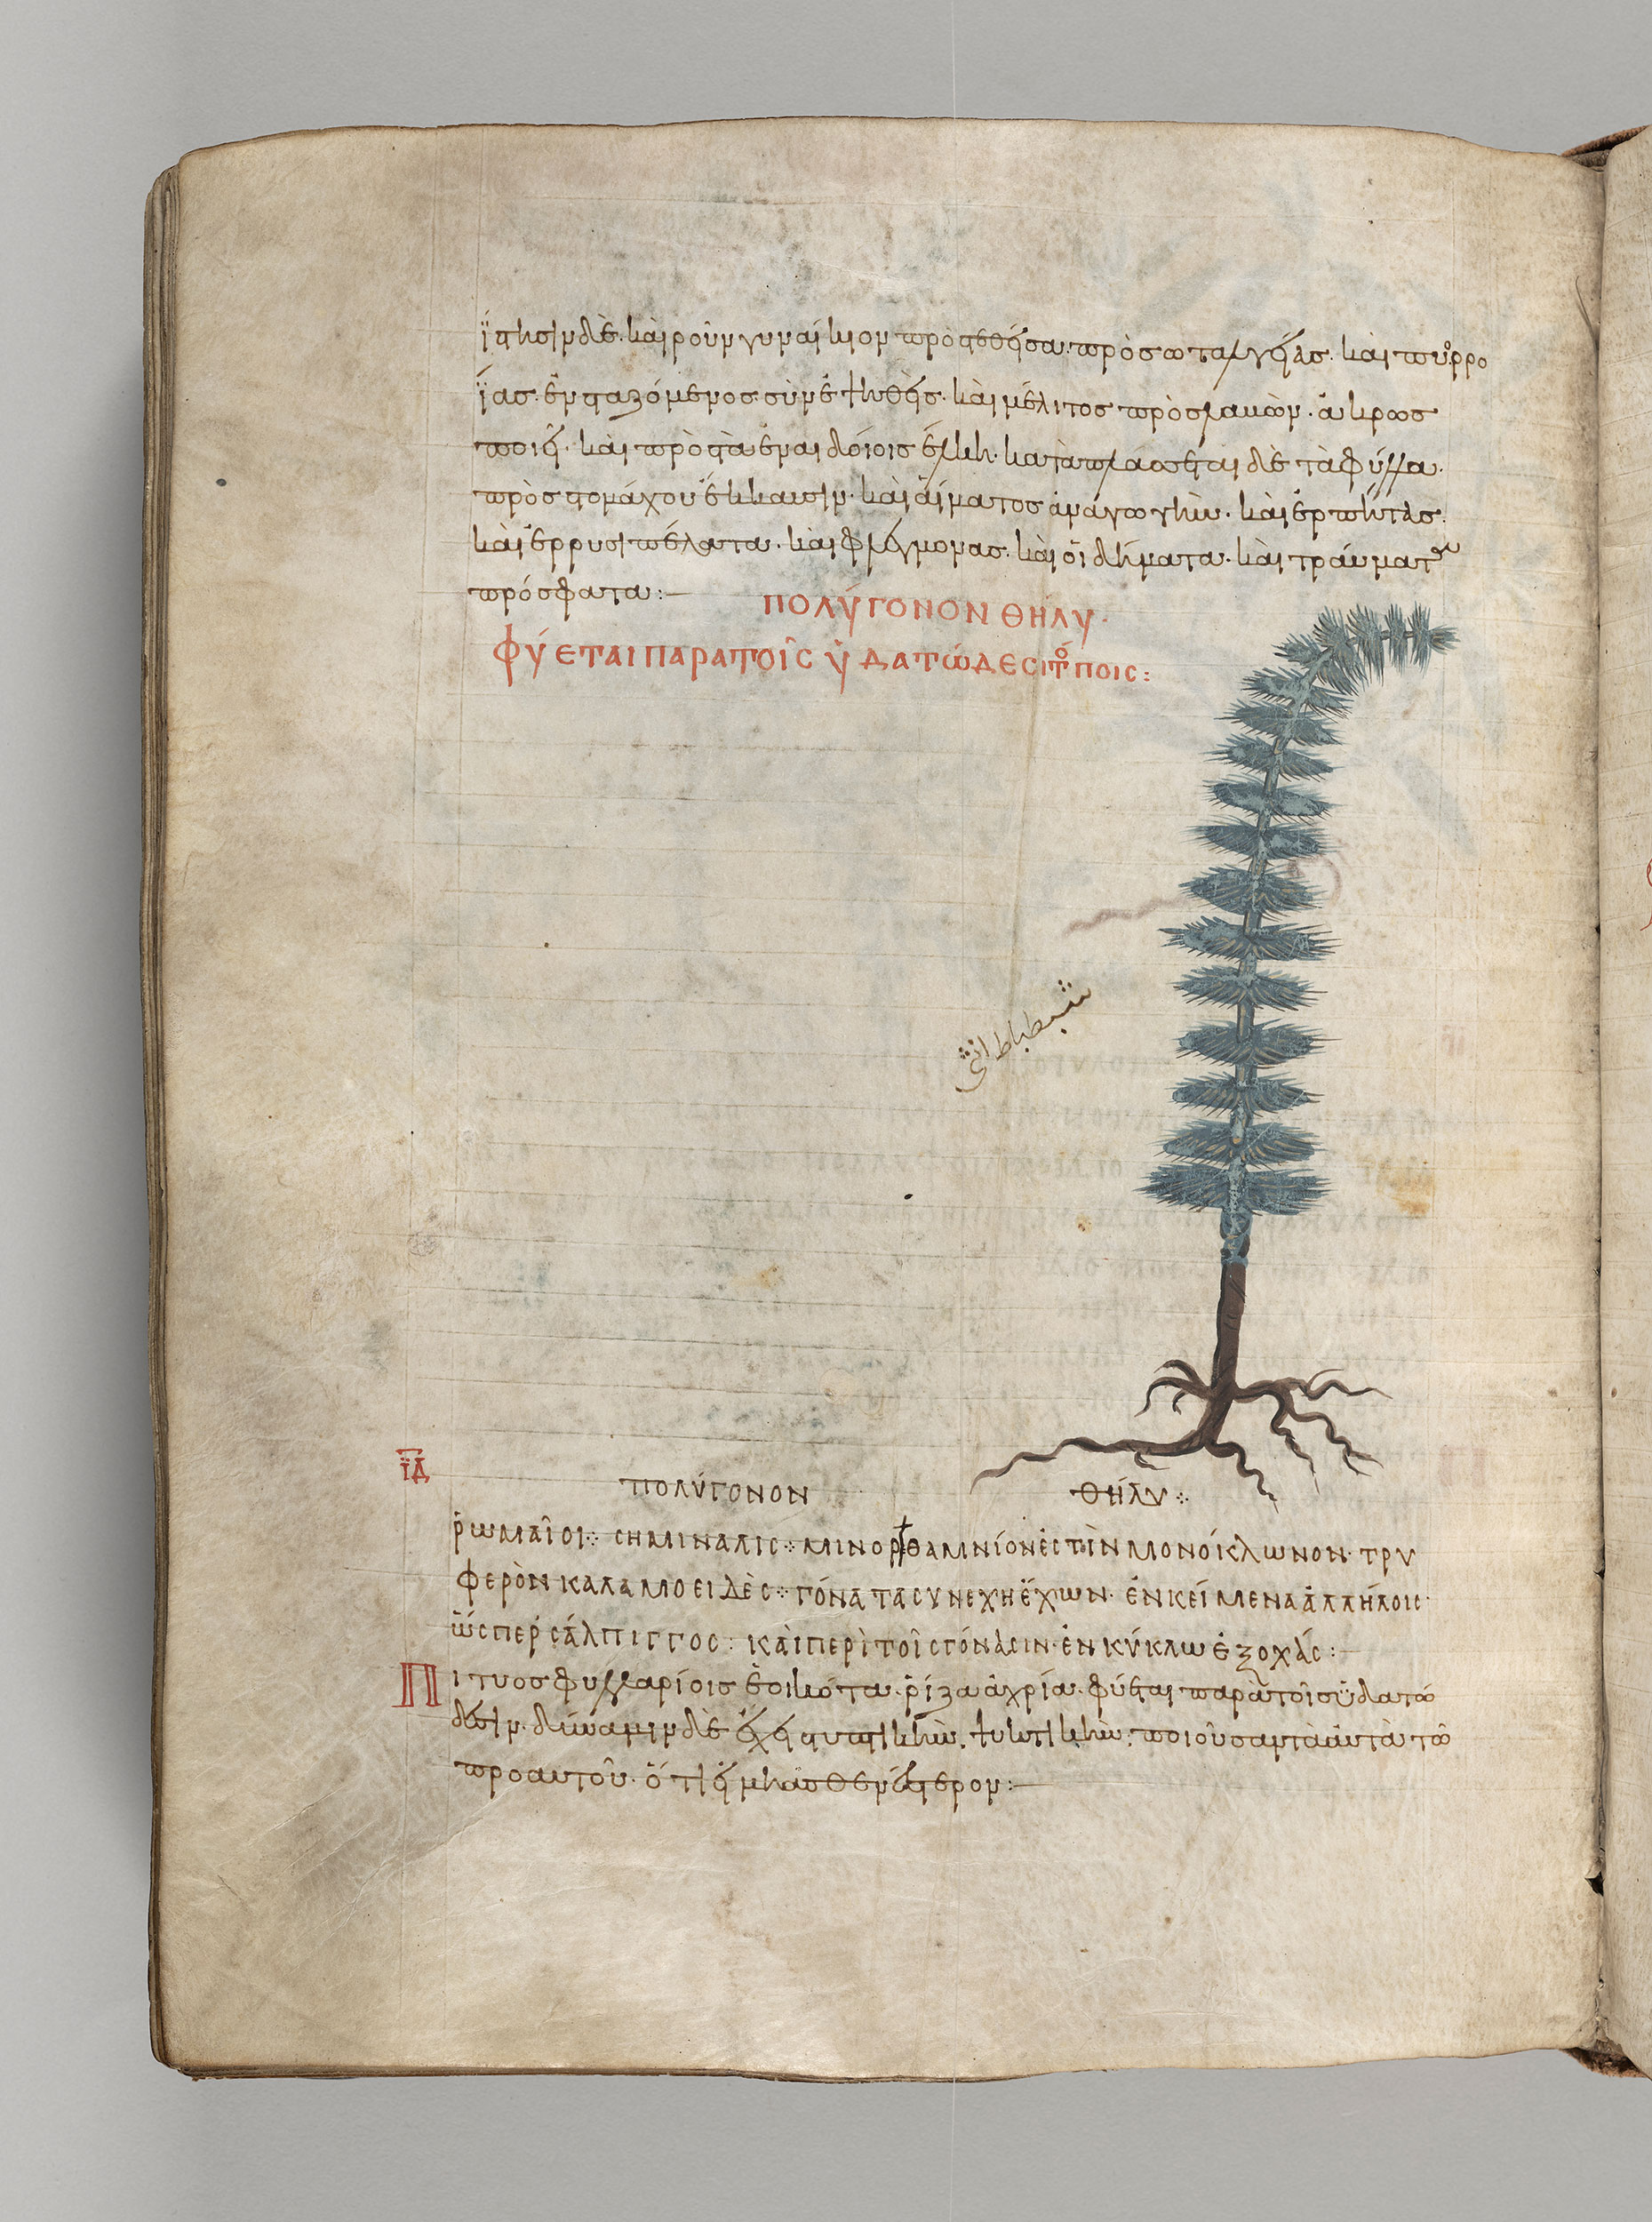 ἵστησιν δὲ· καὶ ροῦν γυναίκιον προστεθεῖσα· πρὸς ωταλγείας· καὶ πυορρο
ΐας· ἐν σταζόμενος· σὺν ἑψηθεὶς· καὶ μέλιτος πρὸς λακὼν· ἄκρως
ποιεῖ· καὶ πρὸς τὰ ἐν αιδοίοις ἕλκη· καταπλάσσεται δὲ τὰ φύλλα·
πρὸς στομάχου ἔκκαυσιν· καὶ αἵματος ἀναγωγὴν· καὶ ἕρπητας·
καὶ ἐρρυσιπέλατα· καὶ φλεγμονας· καὶ οἰδήματα· καὶ τραύματα
πρόσφατα:—
ΠΟΛΎΓΟΝΟΝ ΘΗΛΥ·
ΦΎΕΤΑΙ ΠΑΡΑ ΤΟῖС ὙΔΑΤΏΔΕСΙ ΤΌΠΟΙС:
شبطباط انثى
ΙΔ
ΠΟΛΎΓΟΝΟΝ ΘΉΛΥ
ῥΩΜΑῖΟΙ СΗΜΙΝΑΛΙС ΜΙΝΟΡ ΘΑΜΝΊΟΝ ἐСΤῚΝ ΜΟΝΌΚΛΩΝΟΝ· ΤΡΥ
ΦΕΡῸΝ ΚΑΛΑΜΟΕΙΔῈС ΓΌΝΑΤΑ СΥΝΕΧΗ ἜΧΩΝ· ἘΝΚΕΊΜΕΝΑ ἈΛΛΉΛΟΙС·
ὭСΠΕΡ СΆΛΠΙΓΓΟС: ΚΑῚ ΠΕΡῚ ΤΟῖС ΓΌΝΑСΙΝ· ἘΝ ΚΎΚΛΩ ἘΞΟΧΆС:
Πίτυος φυλλαρίοις ἐοικότα· ῥίζα ἀχρία· φύεται παρὰ τοῖς ὑδατώ
δεσιν· δύναμιν δὲ ἔχει στυπτικὴν· ψυκτικὴν· ποιοῦσαν τὰ αὐτὰ τῶ
προ αυτοῦ· ὅτι εἰ μὴ ἀσθενέστερον:—